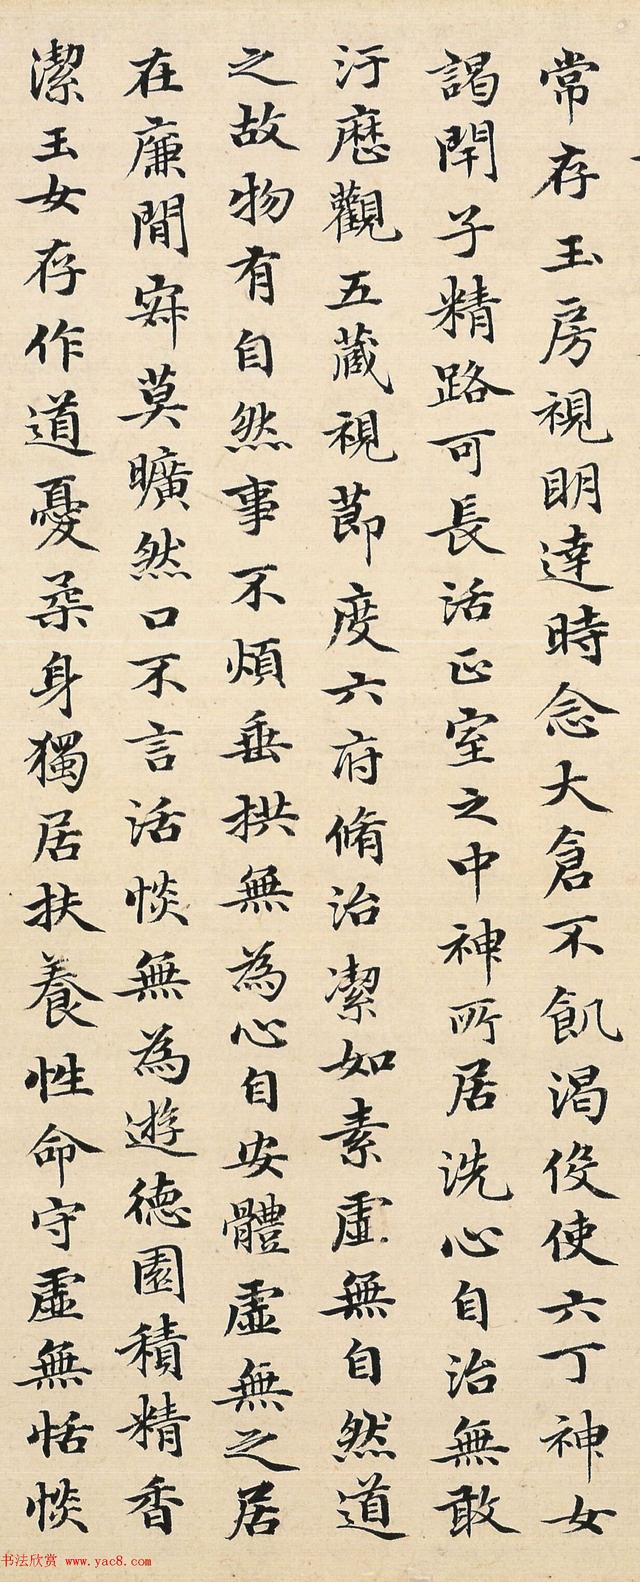 常存玉房視明達時念大倉不飢渴役使六丁神女
謁閉子精路可長活正室之中神所居洗心自治無敢
汙歷觀五藏視節度六府脩治潔如素虛無自然道
之故物有自然事不煩垂拱無為心自安體虛無之居
在廉間寂莫曠然口不言活惔無為遊德園積精香
潔玉女存作道憂柔身獨居扶養性命守虛無恬惔
书法欣赏 www.yac8.com